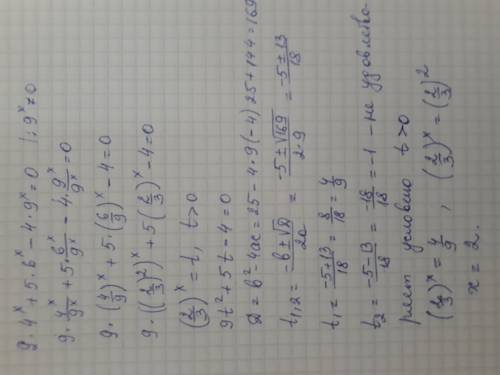 9·4ˣ+5·6ˣ-4·9ˣ=0 |:9ˣ≠0
9·4ˣ/9ˣ+5·6ˣ/9ˣ-4·9ˣ/9ˣ=0
9·(4/9)ˣ+5·(6/9)ˣ-4=0
9·((2/3)²)ˣ+5(2/3)ˣ-4=0
(2/3)ˣ=t, t>0
9t²+5t-4=0
D=b²-4ac=25-4·9(-4)25+144=169
t₁,₂=(-b±√D)/2a=(-5±√169)/(2·9)=(-5±13)/18
t₁=(-5+13)/18=8/18=4/9
t₂=(-5-13)/18=-18/18=-1-не удовлетво-
ряет условию t>0
(2/3)ˣ=4/9, (2/3)ˣ=(2/3)²
x=2.